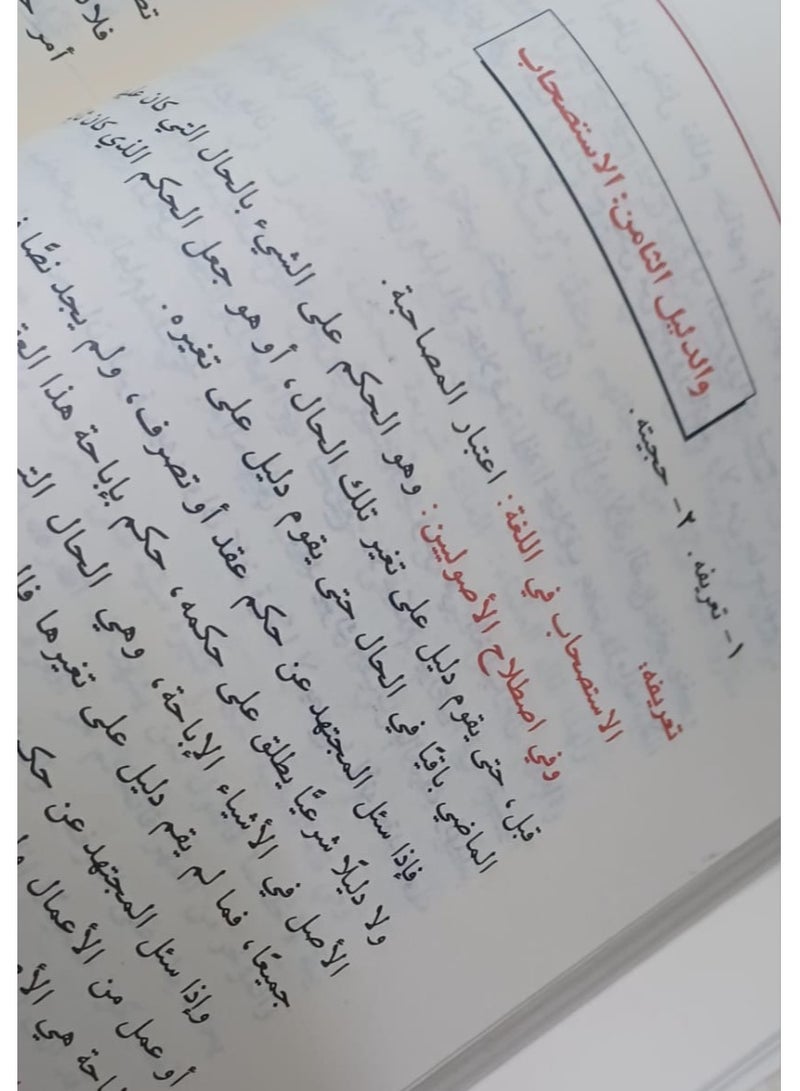 والدليل الثامن: الاستصحاب
١- تعريفه. ٢- حجيته.
تعريفه:
الاستصحاب في اللغة: اعتبار المصاحبة.
وفي اصطلاح الأصوليين: وهو الحكم على الشيء بالحال التي كان
قبل، حتى يقوم دليل على تغير تلك الحال، أو هو جعل الحكم الذي كان
الماضي باقيًا في الحال حتى يقوم دليل على تغيره.
فإذا سئل المجتهد عن حكم عقد أو تصرف، ولم يجد نصًا
ولا دليلًا شرعيًا يطلق على حكمه، حكم بإباحة هذا
الأصل في الأشياء الإباحة، وهي الحال
جميعًا، فما لم يقم دليل على تغيرها
وإذا سئل المجتهد عن
أو عمل من الأعمال
هي
فلا
أمر